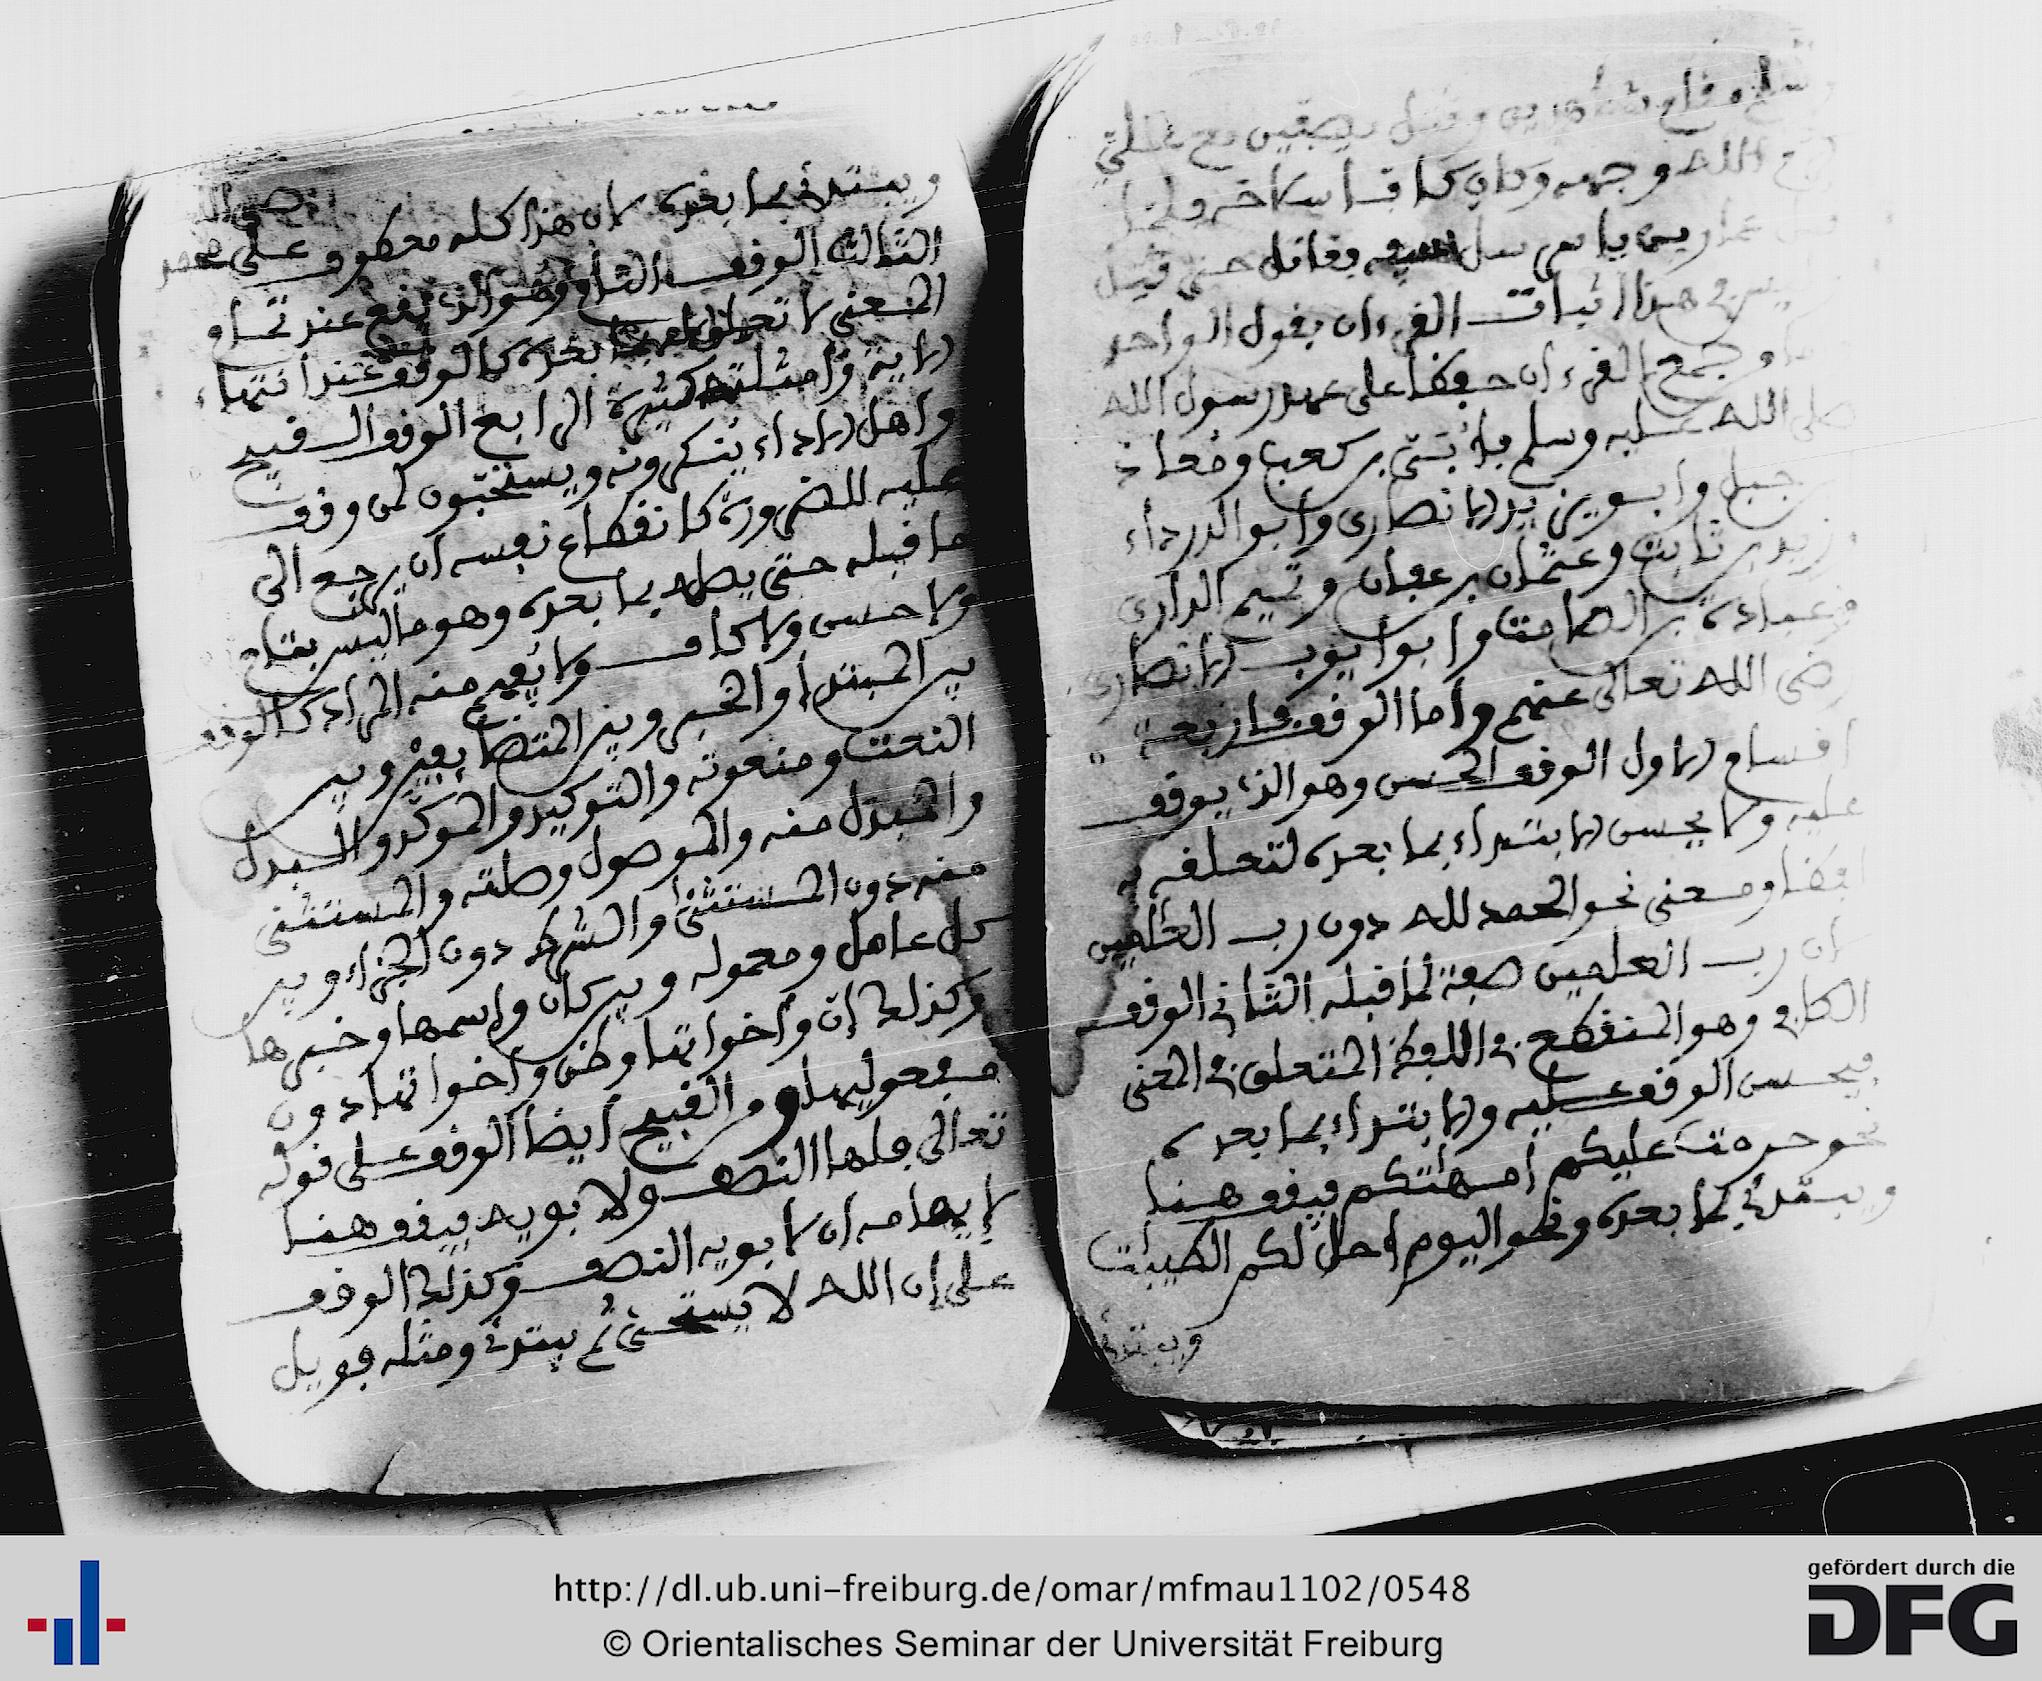 وسلم وقام شهرين وقتل بصفين مع علي
الله وجهه وكان كافا سلاحه فلما
عمار بن ياسر سل سيفه وقاتل حتى قتل
في هذا اثبات القرءان بقول الواحد
وجمع القرءان حفظا على عهد رسول الله
صلى الله عليه وسلم أبي بن كعب ومعاذ
جبل وأبو زيد الانصاري وأبو الدرداء
وزيد بن ثابت وعثمان بن عفان وتميم الداري
وعبادة بن الصامت وأبو أيوب الانصاري
رضى الله تعالى عنهم وأما الوقف فأربعة
اقسام الاول الوقف الحسن وهو الذي يوقف
عليه ولا يحسن الابتداء بما بعده لتعلقه به
لفظا ومعنى نحو الحمد لله دون رب العلمين
لان رب العلمين صفة لما قبله الثاني الوقف
الكافي وهو المنقطع في اللفظ المتعلق في المعنى
فيحسن الوقف عليه والابتداء بما بعده
نحو حرمت عليكم أمهتكم فيقف هنا
ويبتدئ بما بعده ونحو اليوم أحل لكم الطيبات
ويبتدئ
ويبتدئ بما بعده لان هذا كله معطوف على بعض
الثالث الوقف التام وهو الذي يقع عند تمام
المعنى لا تعلق له بما بعده كالوقف عند انتهاء
الاية وأمثلته كثيرة الرابع الوقف القبيح
وأهل الاداء ينكرونه ويستحبون لمن وقف
عليه للضرورة كانقطاع نفسه ان يرجع الى
ما قبله حتى يصله بما بعده وهو ما ليس بتام
ولا حسن ولا كاف ولا يفهم منه المراد كالوقف
بين المبتدأ والخبر وبين المتضايفين وبين
النعت ومنعوته والتوكيد والموكد والبدل
والمبدل منه والموصول وصلته والمستثنى
منه دون المستثنى والشرط دون الجزاء وبين
كل عامل ومعموله وبين كان وإسمها وخبرها
وكذلك إن وأخواتها وظن وأخواتها دون
مفعوليها ومن القبيح أيضا الوقف على قوله
تعالى فلها النصف ولابويه فيقف هنا
لإيهامه ان لابويه النصف وكذلك الوقف
على إن الله لا يستحي ثم يبتدئ ومثله فويل
http://dl.ub.uni-freiburg.de/omar/mfmau1102/0548
© Orientalisches Seminar der Universität Freiburg
gefördert durch die
DFG